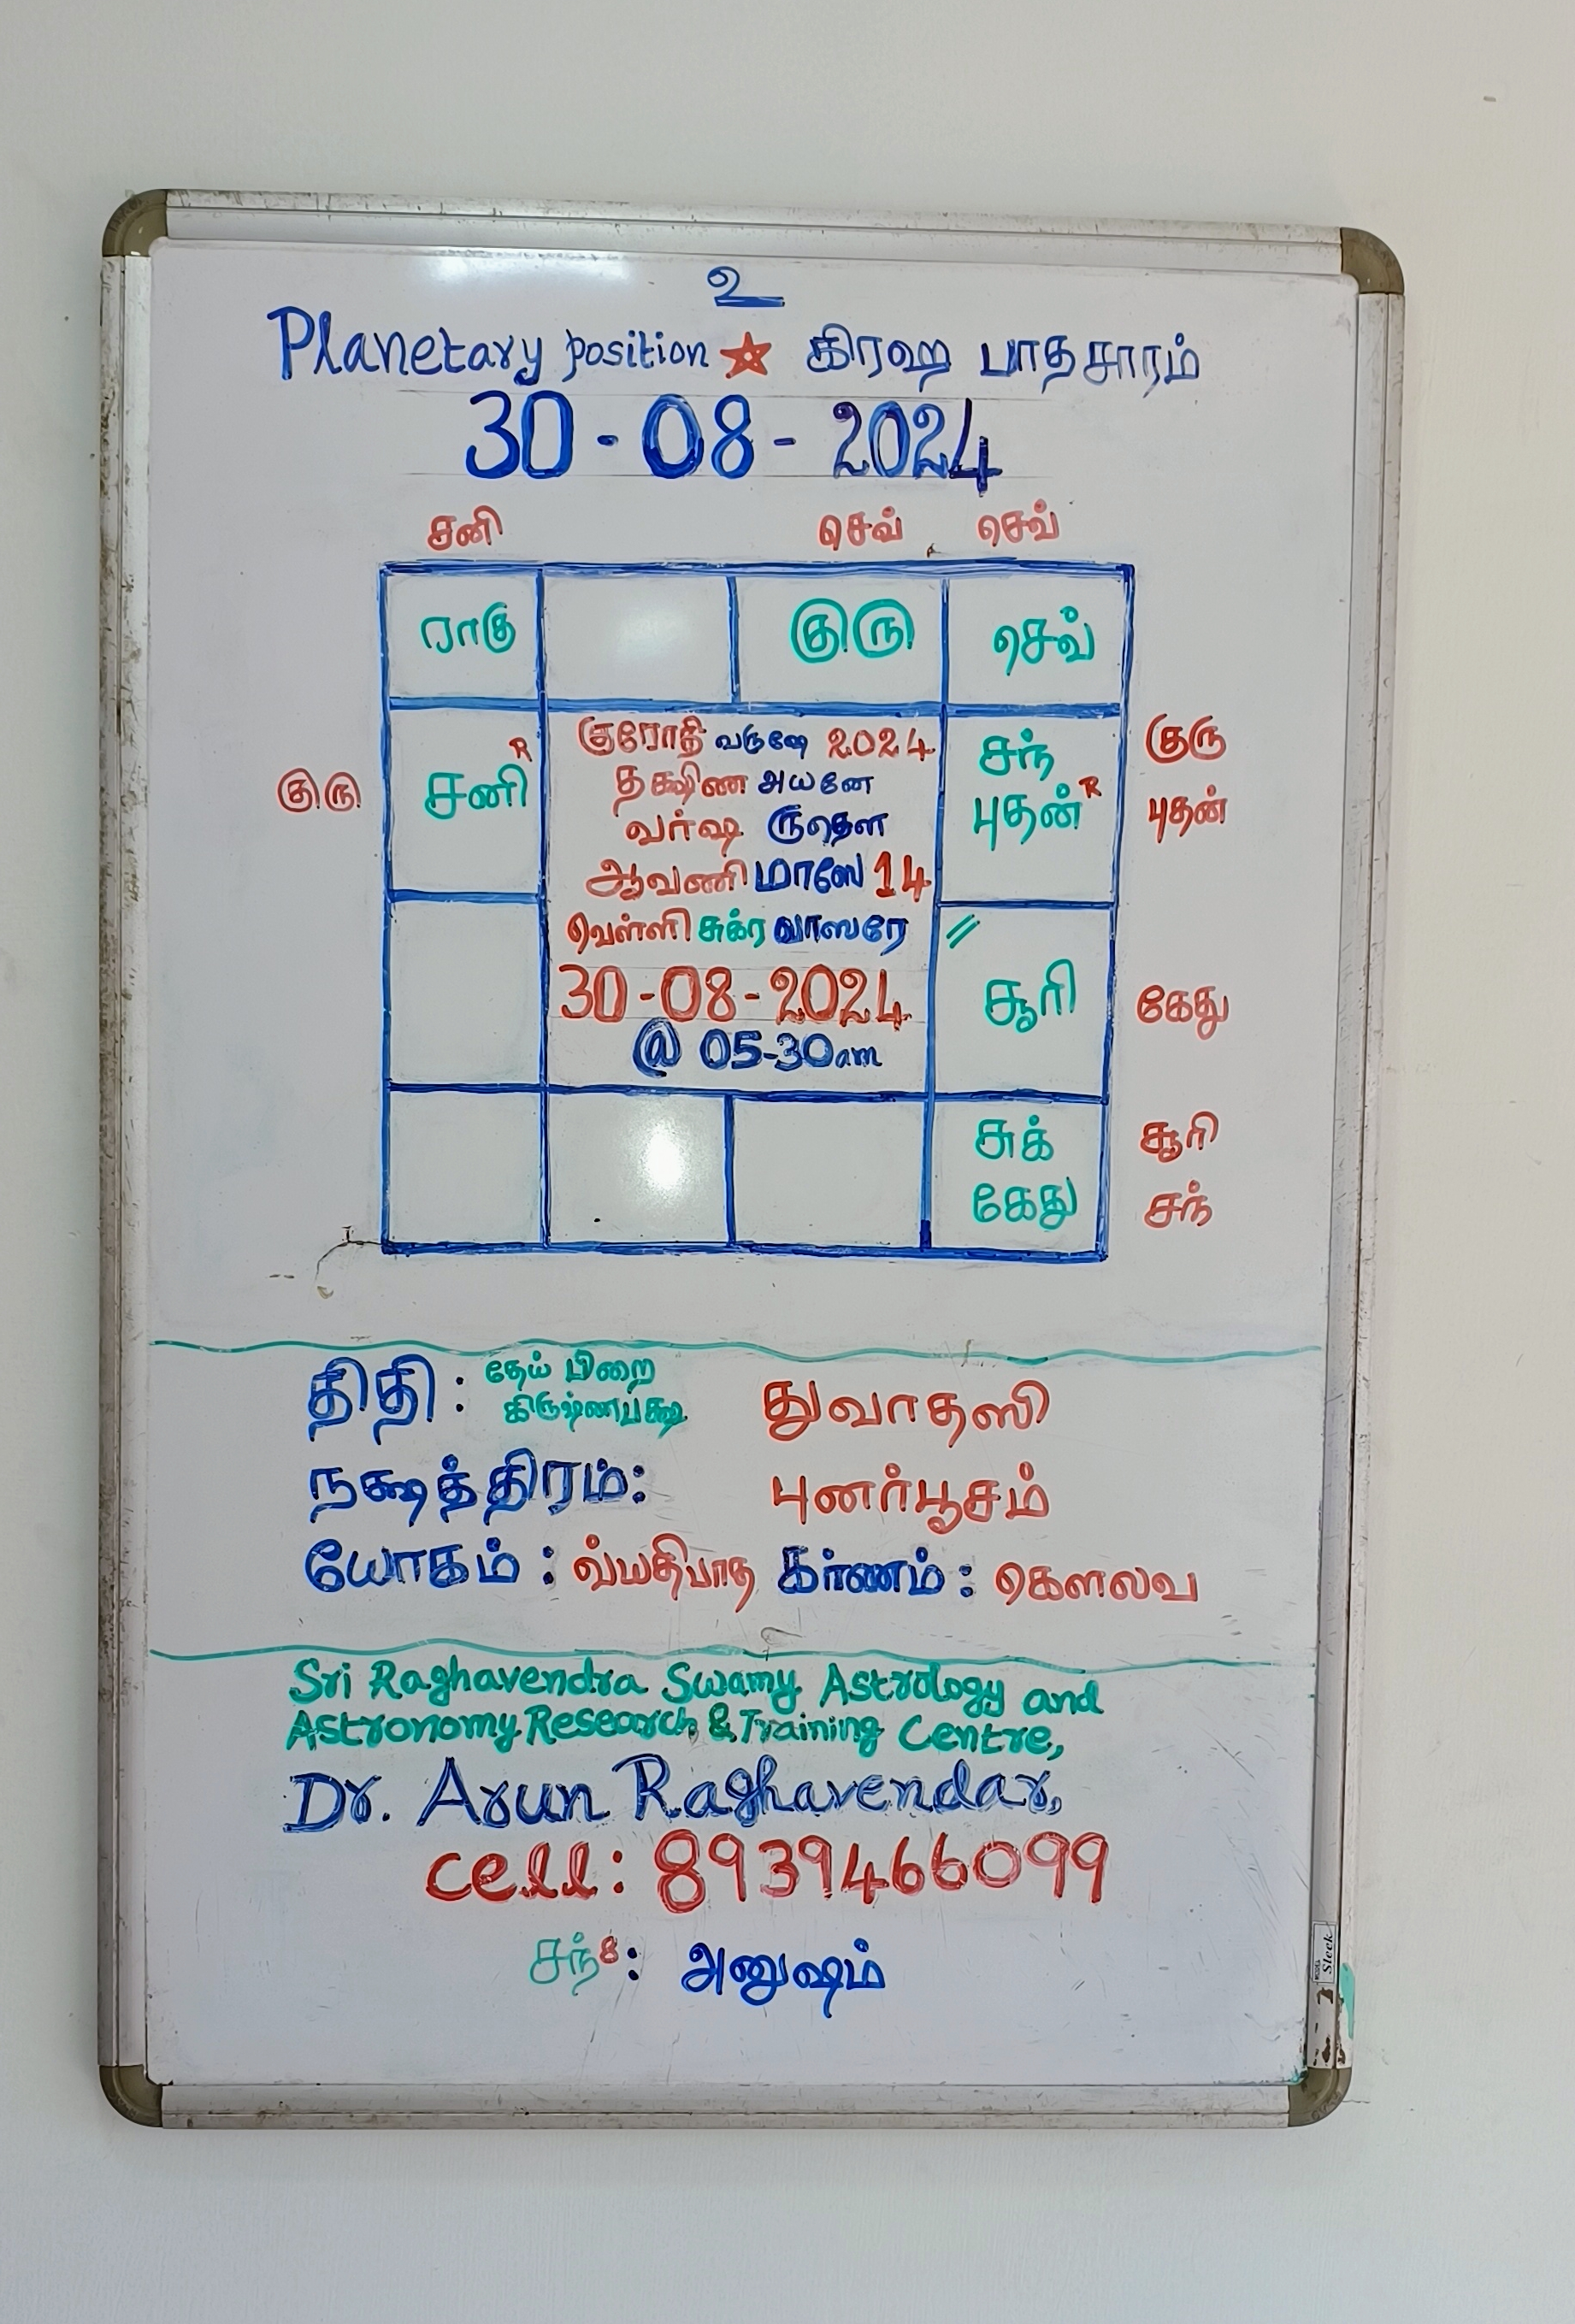 உ
Planetary position ★ கிரஹ பாதசாரம்
30-08-2024
சனி செவ் செவ்
ராகு குரு செவ்
குரு சனி R
சந் குரு
புதன் R புதன்
குரோதி வருஷே 2024
தக்ஷிண அயனே
வர்ஷ ருதௌ
ஆவணி மாஸே 14
வெள்ளி சுக்ர வாஸரே
30-08-2024
@ 05-30am
//
சூரி கேது
சுக் சூரி
கேது சந்
திதி : தேய் பிறை கிருஷ்ணபக்ஷ துவாதஸி
நக்ஷத்திரம்: புனர்பூசம்
யோகம் : வ்யதிபாத கர்ணம் : கௌலவ
Sri Raghavendra Swamy Astrology and
Astronomy Research & Training Centre,
Dr. Arun Raghavendar,
cell: 8939466099
சந் 8 : அனுஷம்
Sleek